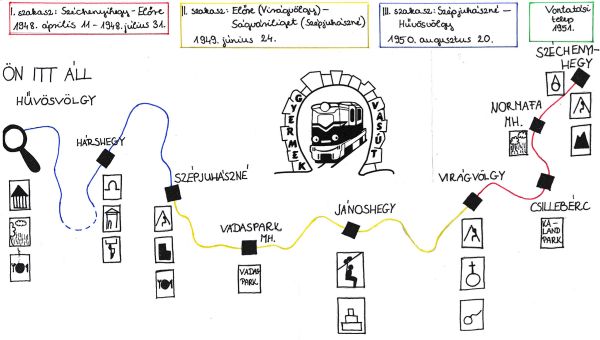 I. szakasz: Széchenyihegy - Előre
1948. április 11 - 1948. július 31.
II. szakasz: Előre (Virágvölgy) -
Ságváriliget (Szépjuhászné)
1949. június 24.
III. szakasz: Szépjuhászné -
Hűvösvölgy
1950. augusztus 20.
Vontatási
telep
1951.
ÖN ITT ÁLL
HŰVÖSVÖLGY
HÁRSHEGY
SZÉPJUHÁSZNÉ
VADASPARK
MH.
VADAS
PARK
GYERMEK
VASÚT
JÁNOSHEGY
VIRÁGVÖLGY
SZÉCHENYI-
HEGY
NORMAFA
MH.
CSILLEBÉRC
KA-
LAND
PARK